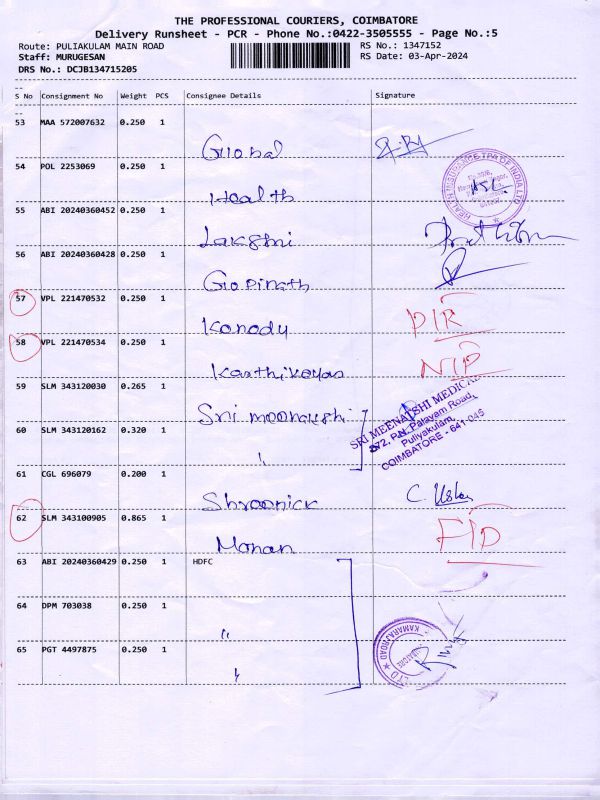 THE PROFESSIONAL COURIERS, COIMBATORE
Delivery Runsheet - PCR - Phone No.:0422-3505555 - Page No.:5
Route: PULIAKULAM MAIN ROAD RS No.: 1347152
Staff: MURUGESAN RS Date: 03-Apr-2024
DRS No.: DCJB134715205
S No Consignment No Weight PCS Consignee Details Signature
53 MAA 572007632 0.250 1
Global
54 POL 2253069 0.250 1
Health
HEALTH INSURANCE TPA OF INDIA LTD
55 ABI 20240360452 0.250 1
Lakshmi
56 ABI 20240360428 0.250 1
Gopinath
57 VPL 221470532 0.250 1
DIR
58 VPL 221470534 0.250 1
Karthikeyan NIP
59 SLM 343120030 0.265 1
Sri meenakshi
SRI MEENAKSHI MEDICAL
372, P.N. Palayam Road,
Puliyakulam,
COIMBATORE - 641 045
60 SLM 343120162 0.320 1
"
61 CGL 696079 0.200 1
C. Usha
62 SLM 343100905 0.865 1
Mohan FID
63 ABI 20240360429 0.250 1 HDFC
64 DPM 703038 0.250 1
"
KAMARAJ ROAD
65 PGT 4497875 0.250 1
"